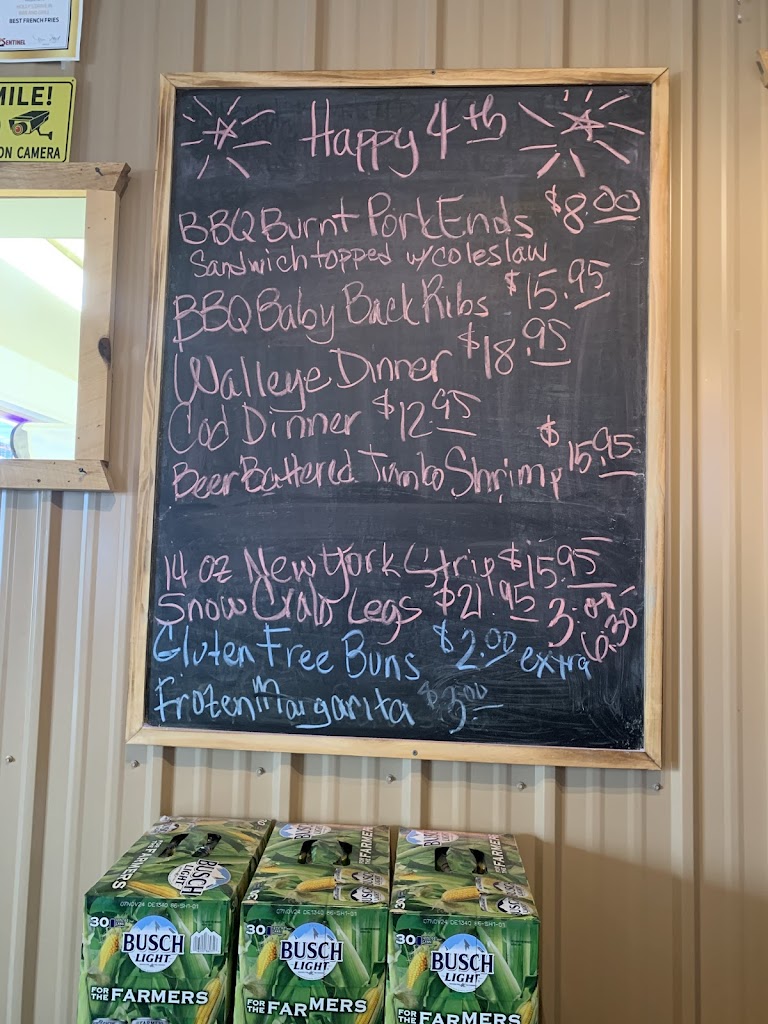 BEST FRENCH FRIES
SENTINEL
MILE!
ON CAMERA
Happy 4th
BBQ Burnt Pork Ends $8.00
Sandwich topped w/coleslaw
BBQ Baby Back Ribs $15.95
Walleye Dinner $18.95
Cod Dinner $12.95
Beer Battered Jumbo Shrimp $15.95
14 oz New York Strip $15.95
Snow Crab Legs $21.95 3:07-6:30
Gluten Free Buns $2.00 extra
Frozen Margarita $3.00
FOR THE FARMERS
BUSCH LIGHT
07NOV24
30
BUSCH
LIGHT
FOR THE FARMERS
BUSCH LIGHT
07NOV24
30
BUSCH
LIGHT
FOR THE FARMERS
BUSCH LIGHT
07NOV24
30
BUSCH
LIGHT
FOR THE FARMERS